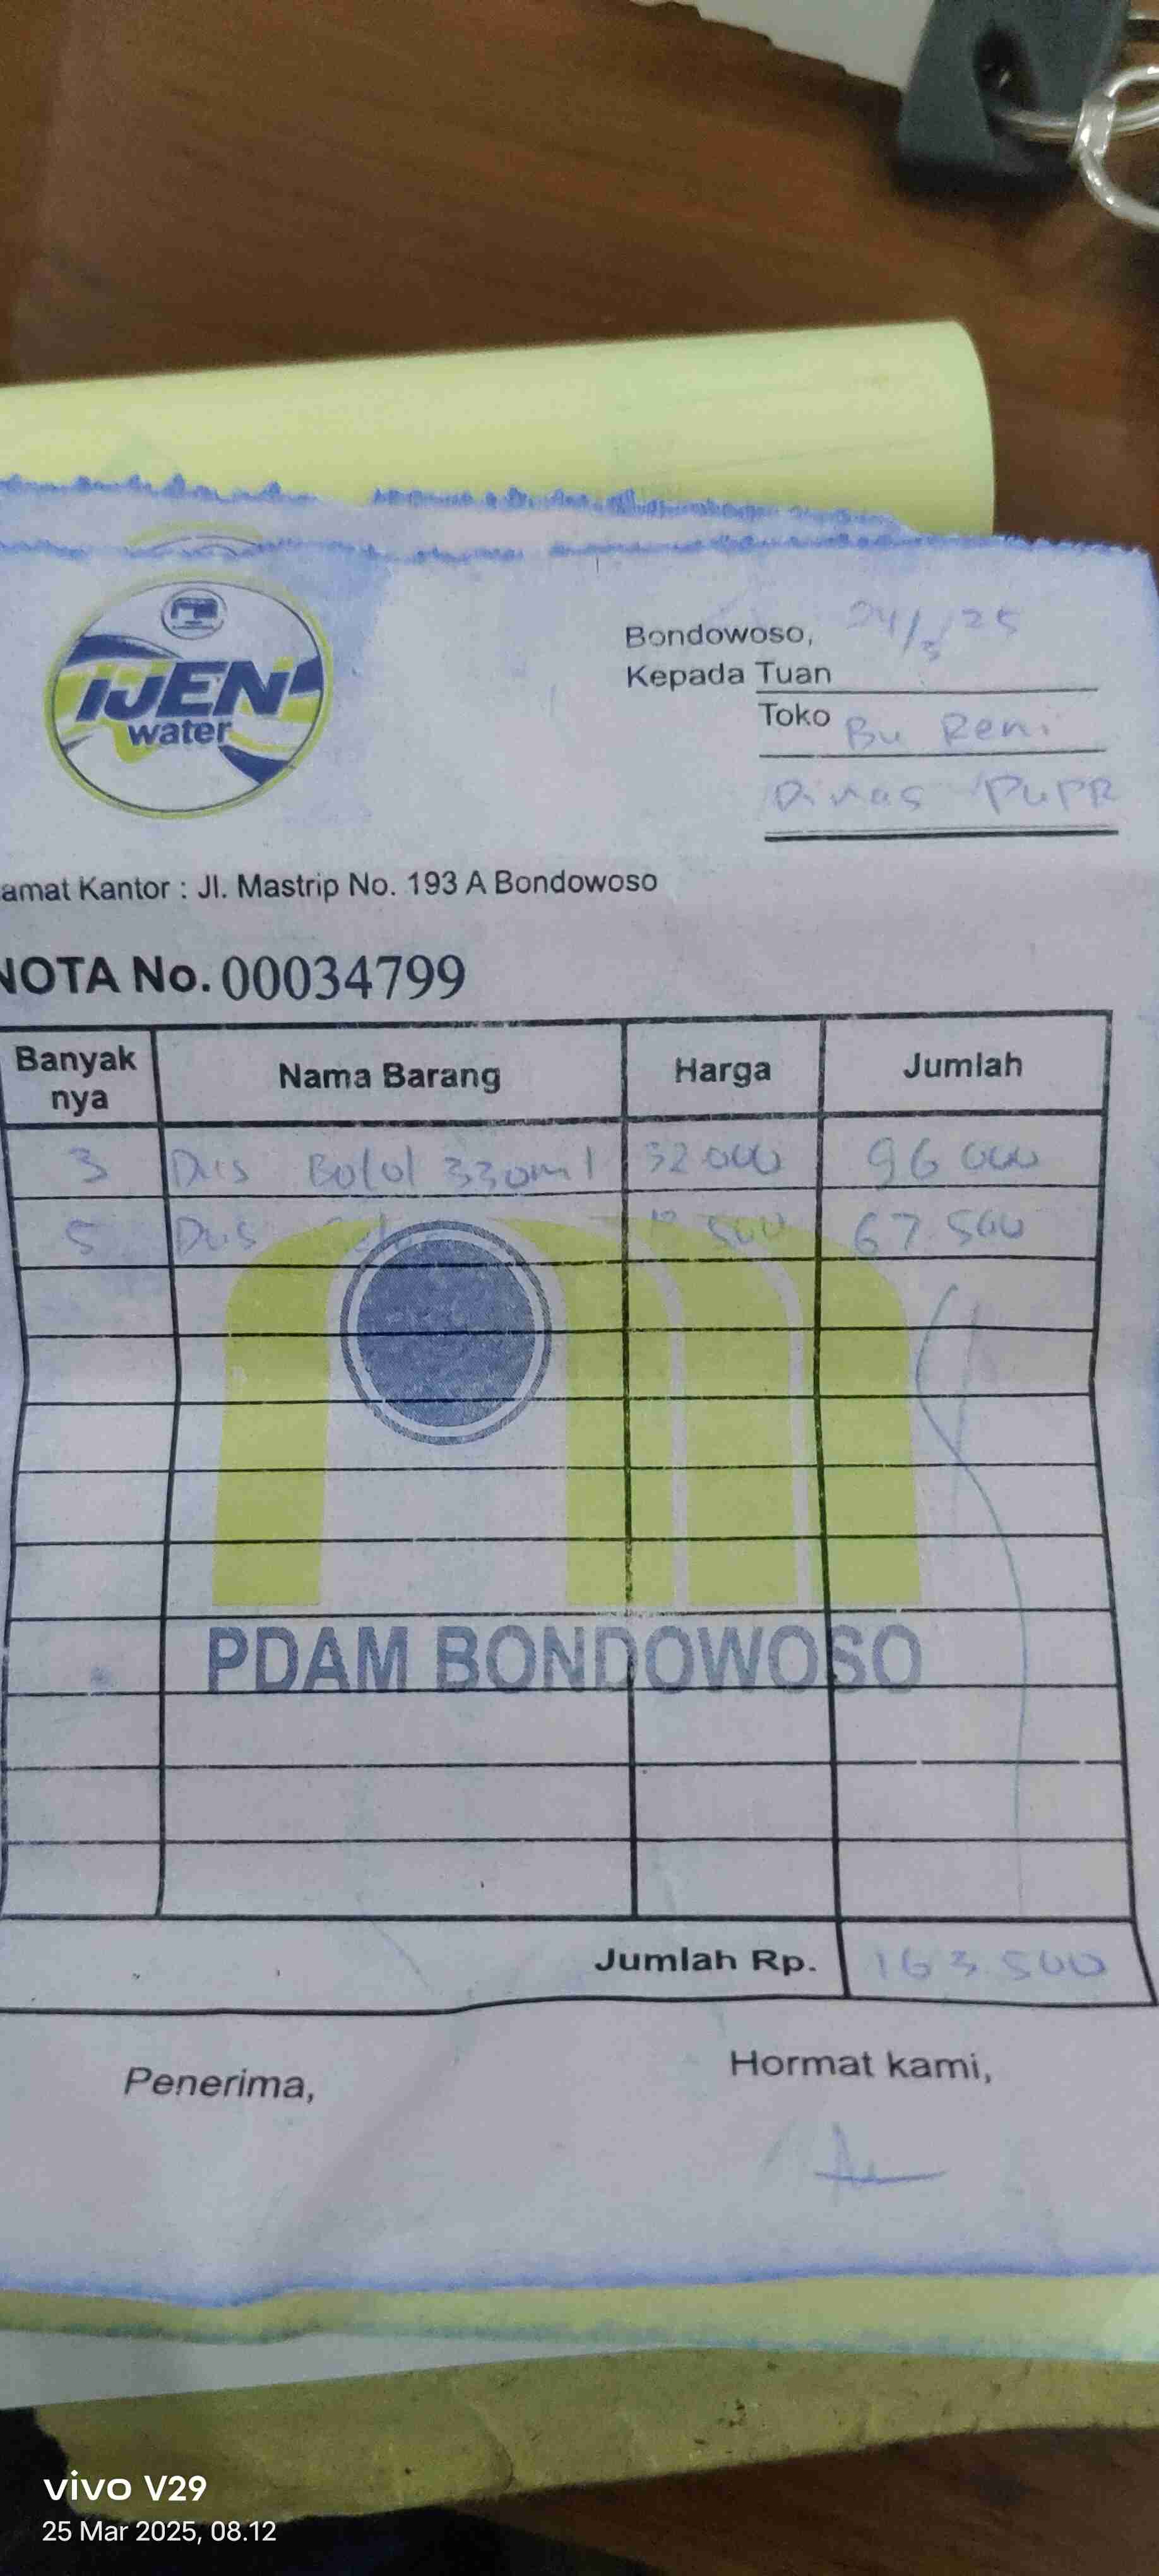 IJEN
water
Bondowoso, 24/3 25
Kepada Tuan
Toko Bu Reni
Dinas PUPR
amat Kantor : Jl. Mastrip No. 193 A Bondowoso
NOTA No. 00034799
Banyak nya Nama Barang Harga Jumlah
3 Dus Botol 330ml 32.000 96.000
5 Dus 500 67.500
PDAM BONDOWOSO
Jumlah Rp. 163.500
Penerima, Hormat kami,
vivo V29
25 Mar 2025, 08.12